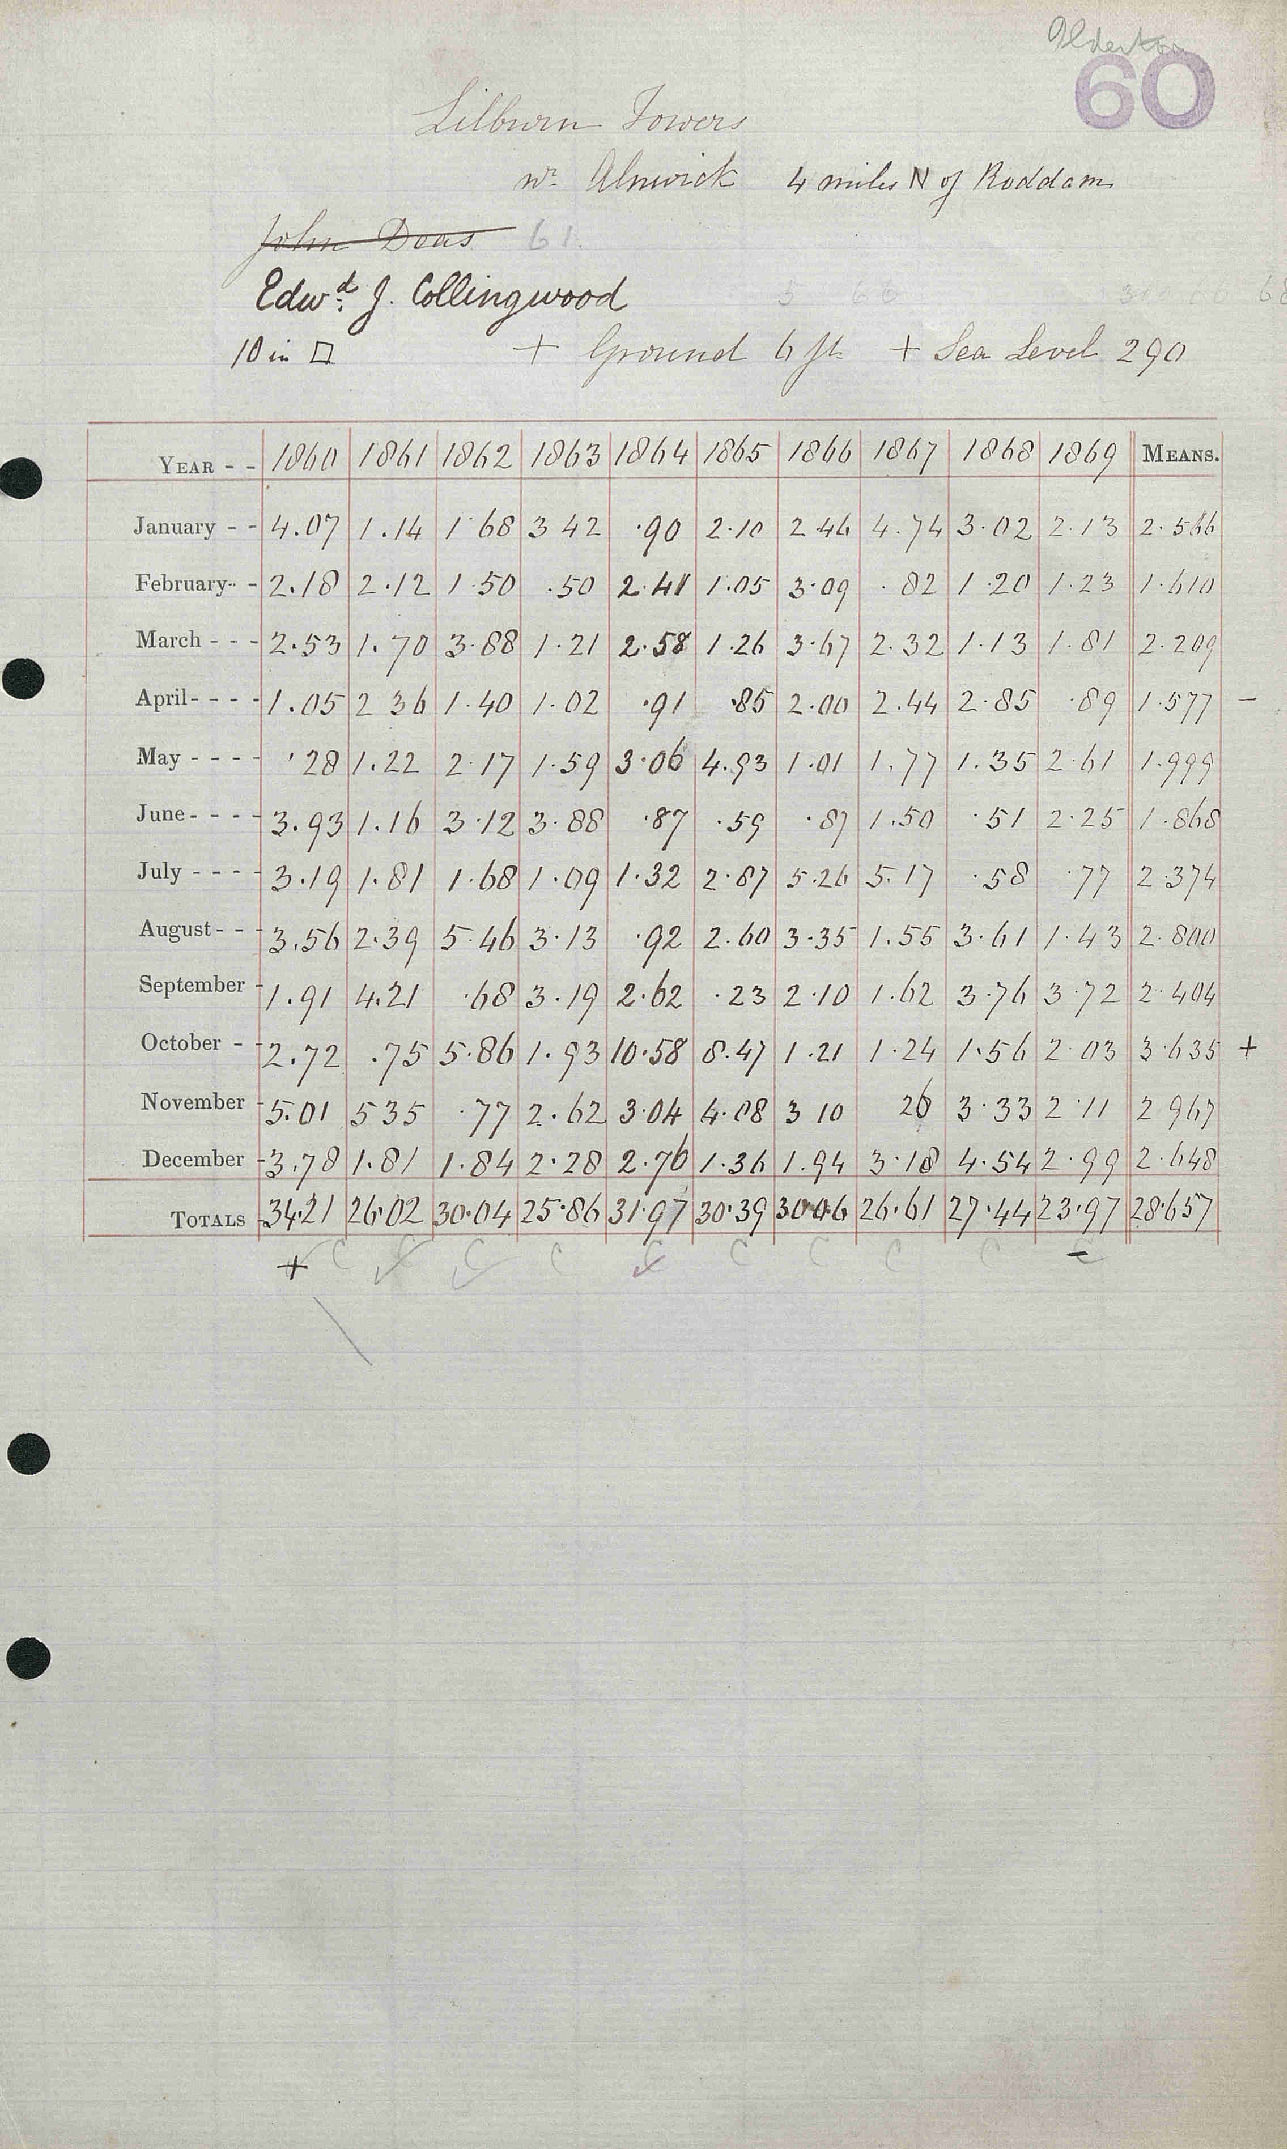 60
Lilburn Towers
nr. Alnwick 4 miles N of Roddam
John Deas 61
Edwd. J. Collingwood
10 in □ + Ground 6 ft + Sea Level 290
YEAR - - 1860 1861 1862 1863 1864 1865 1866 1867 1868 1869 MEANS.
January - - 4.07 1.14 1.68 3.42 .90 2.10 2.46 4.74 3.02 2.13 2.566
February - 2.18 2.12 1.50 .50 2.41 1.05 3.09 .82 1.20 1.23 1.610
March - - - 2.53 1.70 3.88 1.21 2.58 1.26 3.67 2.32 1.13 1.81 2.209
April - - - - 1.05 2.36 1.40 1.02 .91 .85 2.00 2.44 2.85 .89 1.577 -
May - - - - .28 1.22 2.17 1.59 3.06 4.93 1.01 1.77 1.35 2.61 1.999
June - - - - 3.93 1.16 3.12 3.88 .87 .59 .87 1.50 .51 2.25 1.868
July - - - - 3.19 1.81 1.68 1.09 1.32 2.87 5.26 5.17 .58 .77 2.374
August - - - 3.56 2.39 5.46 3.13 .92 2.60 3.35 1.55 3.61 1.43 2.800
September - 1.91 4.21 .68 3.19 2.62 .23 2.10 1.62 3.76 3.72 2.404
October - - 2.72 .75 5.86 1.93 10.58 8.47 1.21 1.24 1.56 2.03 3.635 +
November - 5.01 5.35 .77 2.62 3.04 4.08 3.10 26 3.33 2.11 2.967
December - 3.78 1.81 1.84 2.28 2.76 1.36 1.94 3.18 4.54 2.99 2.648
TOTALS 34.21 26.02 30.04 25.86 31.97 30.39 30.06 26.61 27.44 23.97 28.657
+ C C C C C C C C C -